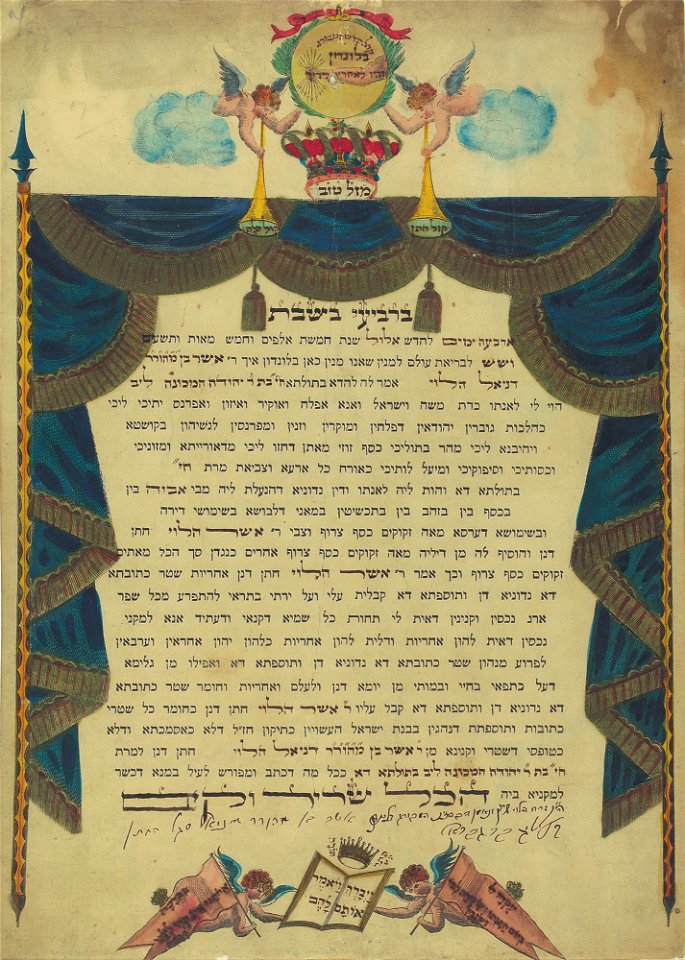 מזל טוב
קול חתן
ברביעי בשבת
ארבעה ימים לחדש אלול שנת חמשת אלפים וחמש מאות ותשעים
ושש לבריאת עולם למנין שאנו מנין כאן בלונדון איך ר׳ אשר בן
דניאל הלוי אמר לה להדא בתולתא בת ר׳ יהודה המכונה ליב
הוי לי לאנתו כדת משה וישראל ואנא אפלח ואוקיר ואיזון ואפרנס יתיכי ליכי
כהלכות גוברין יהודאין דפלחין ומוקרין וזנין ומפרנסין לנשיהון בקושטא
ויהיבנא ליכי מהר בתוליכי כסף זוזי מאתן דחזו ליכי מדאורייתא ומזוניכי
וכסותיכי וסיפוקיכי ומיעל לותיכי כאורח כל ארעא וצביאת מרת
בתולתא דא והות ליה לאנתו ודין נדוניא דהנעלת ליה מבי אבוה בין
בכסף בין בזהב בין בתכשיטין במאני דלבושא בשימושי דירה
ובשימושא דערסא מאה זקוקים כסף צרוף וצבי ר׳ אשר הלוי חתן
דנן והוסיף לה מן דיליה מאה זקוקים כסף צרוף אחרים כנגדן סך הכל מאתים
זקוקים כסף צרוף וכך אמר ר׳ אשר הלוי חתן דנן אחריות שטר כתובתא
דא נדוניא דן ותוספתא דא קבלית עלי ועל ירתי בתראי להתפרע מכל שפר
ארג נכסין וקנינין דאית לי תחות כל שמיא דקנאי ודעתיד אנא למקני
נכסין דאית להון אחריות ודלית להון אחריות כלהון יהון אחראין וערבאין
לפרוע מנהון שטר כתובתא דא נדוניא דן ותוספתא דא ואפילו מן גלימא
דעל כתפאי בחיי ובמותי מן יומא דנן ולעלם ואחריות וחומר שטר כתובתא
דא נדוניא דן ותוספתא דא קבל עליו ר׳ אשר הלוי חתן דנן כחומר כל שטרי
כתובות ותוספתת דנהגין בבנת ישראל העשויין כתיקון חז״ל דלא כאסמכתא ודלא
כטופסי דשטרי וקנינא מן ר׳ אשר בן דניאל הלוי חתן דנן למרת
בת ר׳ יהודה המכונה ליב בתולתא דא ככל מה דכתב ומפורש לעיל במנא דכשר
למקניא ביה הכל שריר וקים
ויברך
אותם
ויאמר
להם